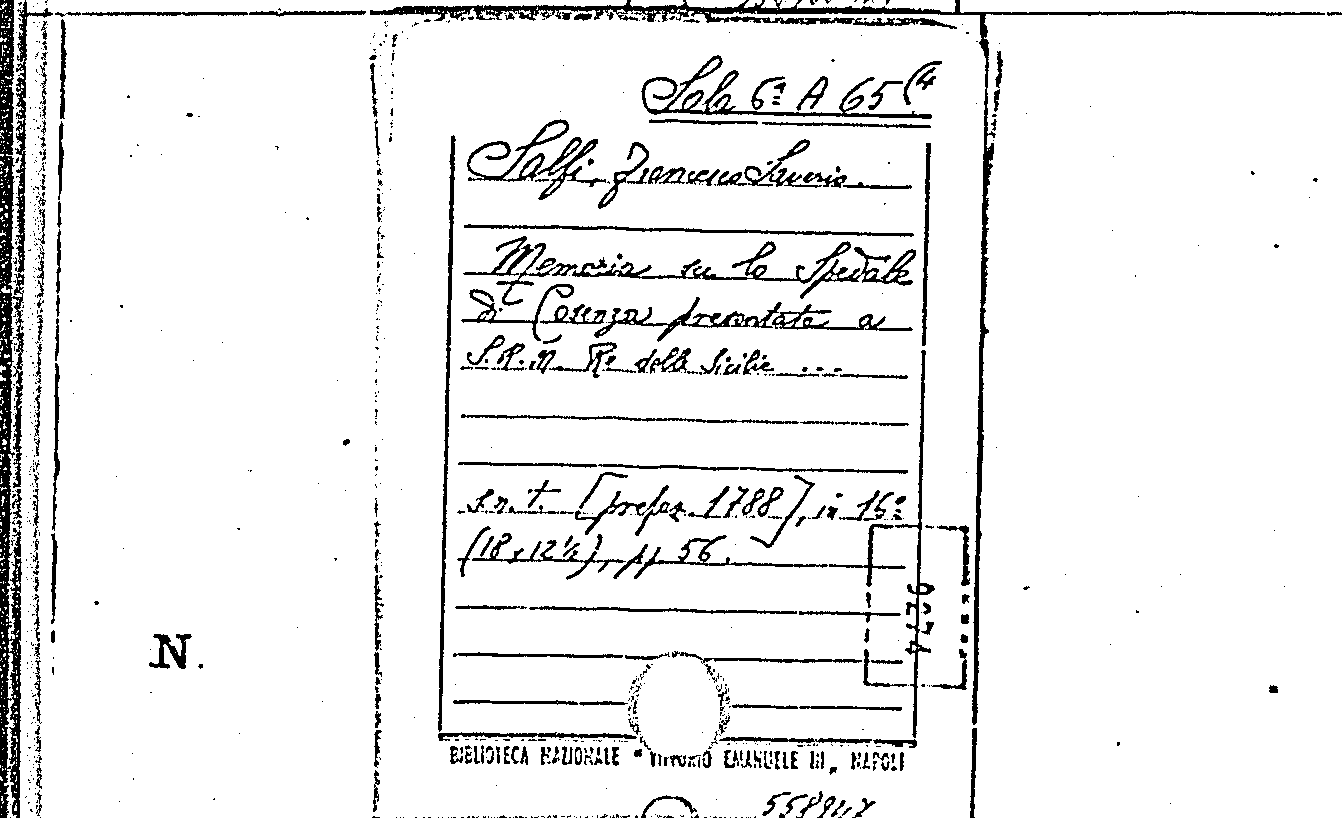 Sala 6ª A 65(4
Salfi, Francesco Saverio.
Memoria su lo Spedale
di Cosenza presentata a
S.R.M. Re delle Sicilie ...
s.n.t. [prefaz. 1788], in 16º
(18 x 12½), pp. 56.
N.
BIBLIOTECA NAZIONALE "VITTORIO EMANUELE III" NAPOLI